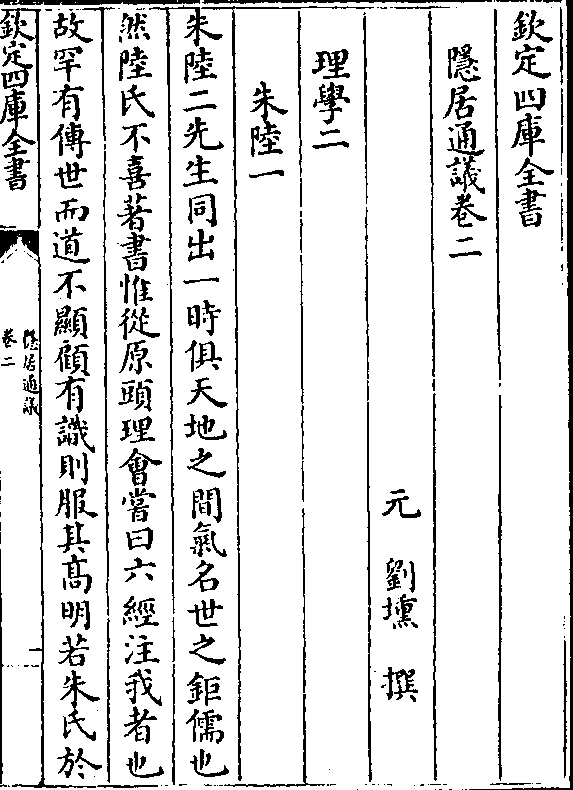 欽定四庫全書
隱居通議卷二
元 劉壎 撰
理學二
朱陸一
朱陸二先生同出一時俱天地之間氣名世之鉅儒也
然陸氏不喜著書惟從原頭理會嘗曰六經注我者也
故罕有傳世而道不顯顧有識則服其高明若朱氏於
欽定四庫全書
隱居通議
卷二
一